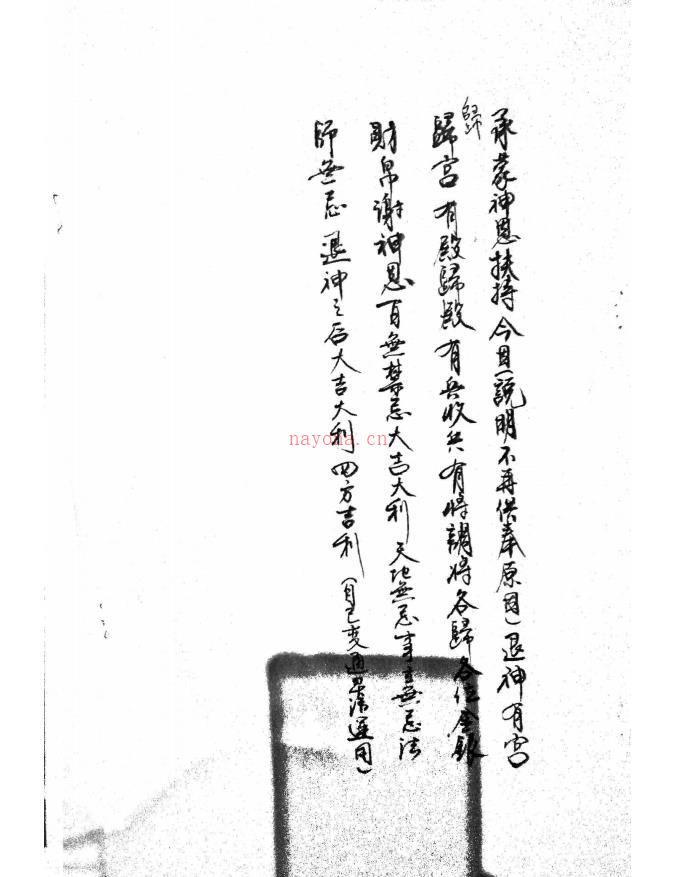 承蒙神恩扶持今日(說明不再供奉原因)退神有宮
歸
歸宮有殿歸殿有兵收兵有將調將各歸各位金銀
財帛謝神恩百無禁忌大吉大利天地無忌事主無忌法
師無忌退神之后大吉大利四方吉利(自己变通 選用)
nayona.cn